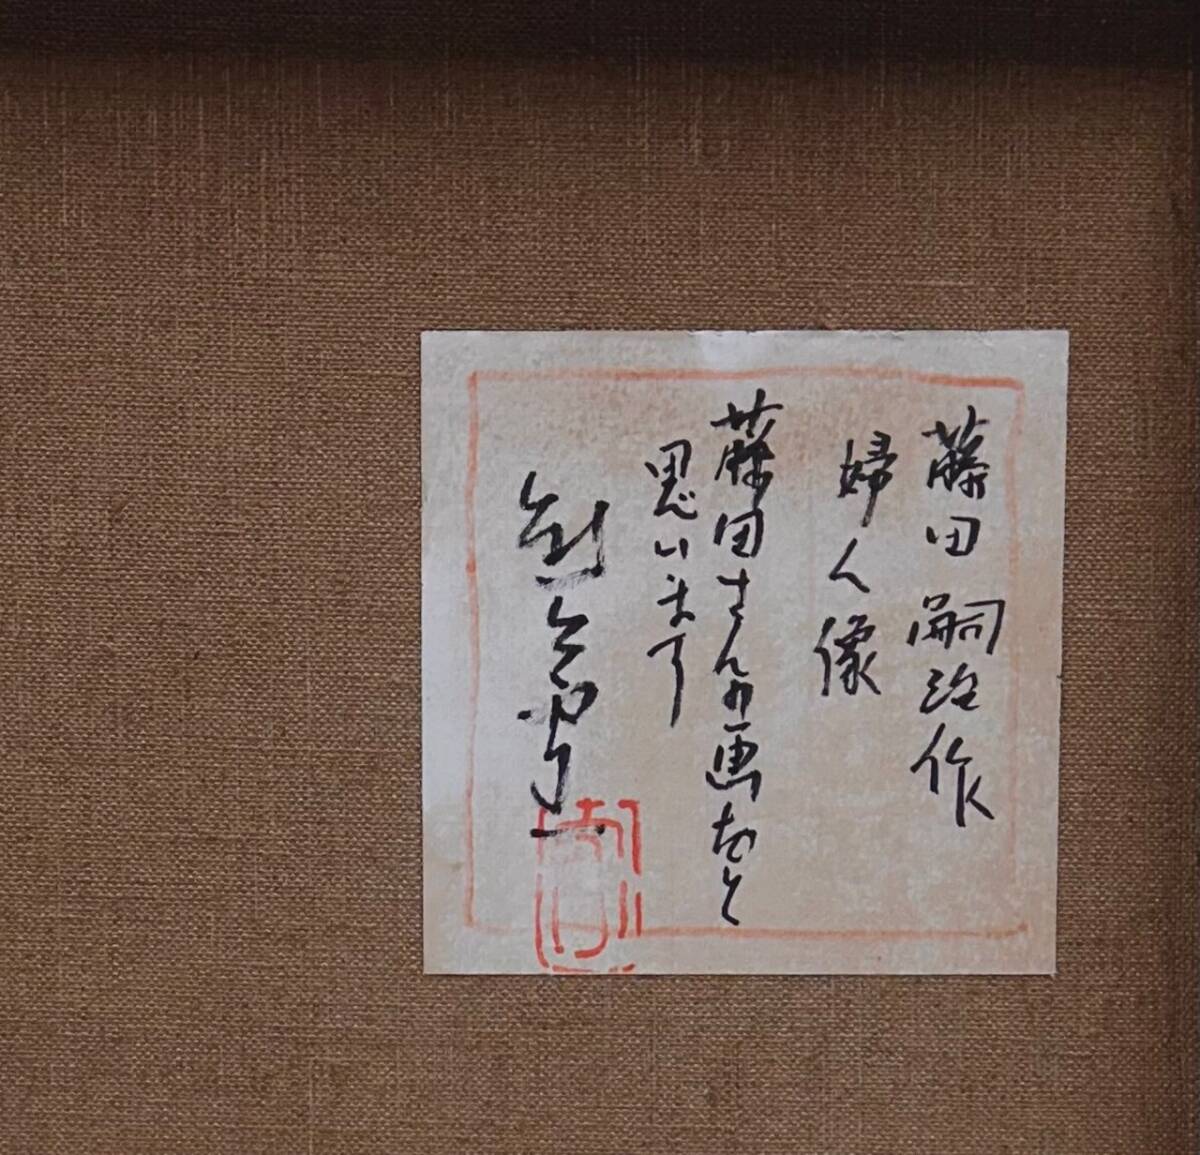 藤田嗣治作
婦人像
藤田さんの画だと
思います